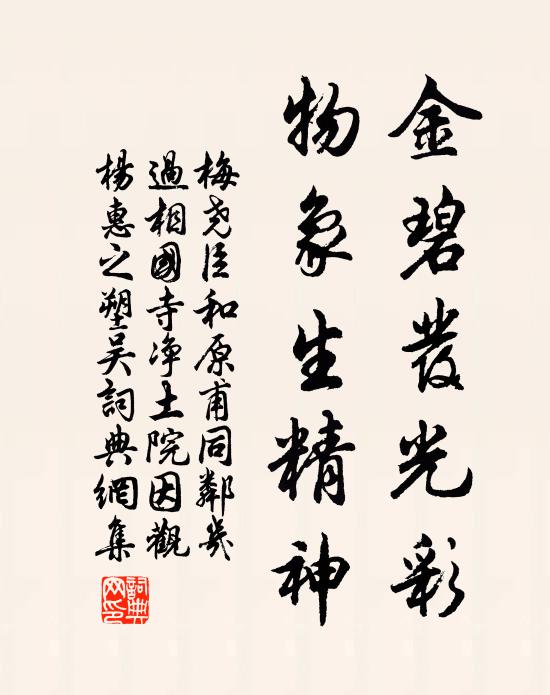 金碧發光彩
物象生精神
梅尧臣和原甫同鄰幾
過相國寺净土院因觀
楊惠之塑吴詞典網集
詞典网印